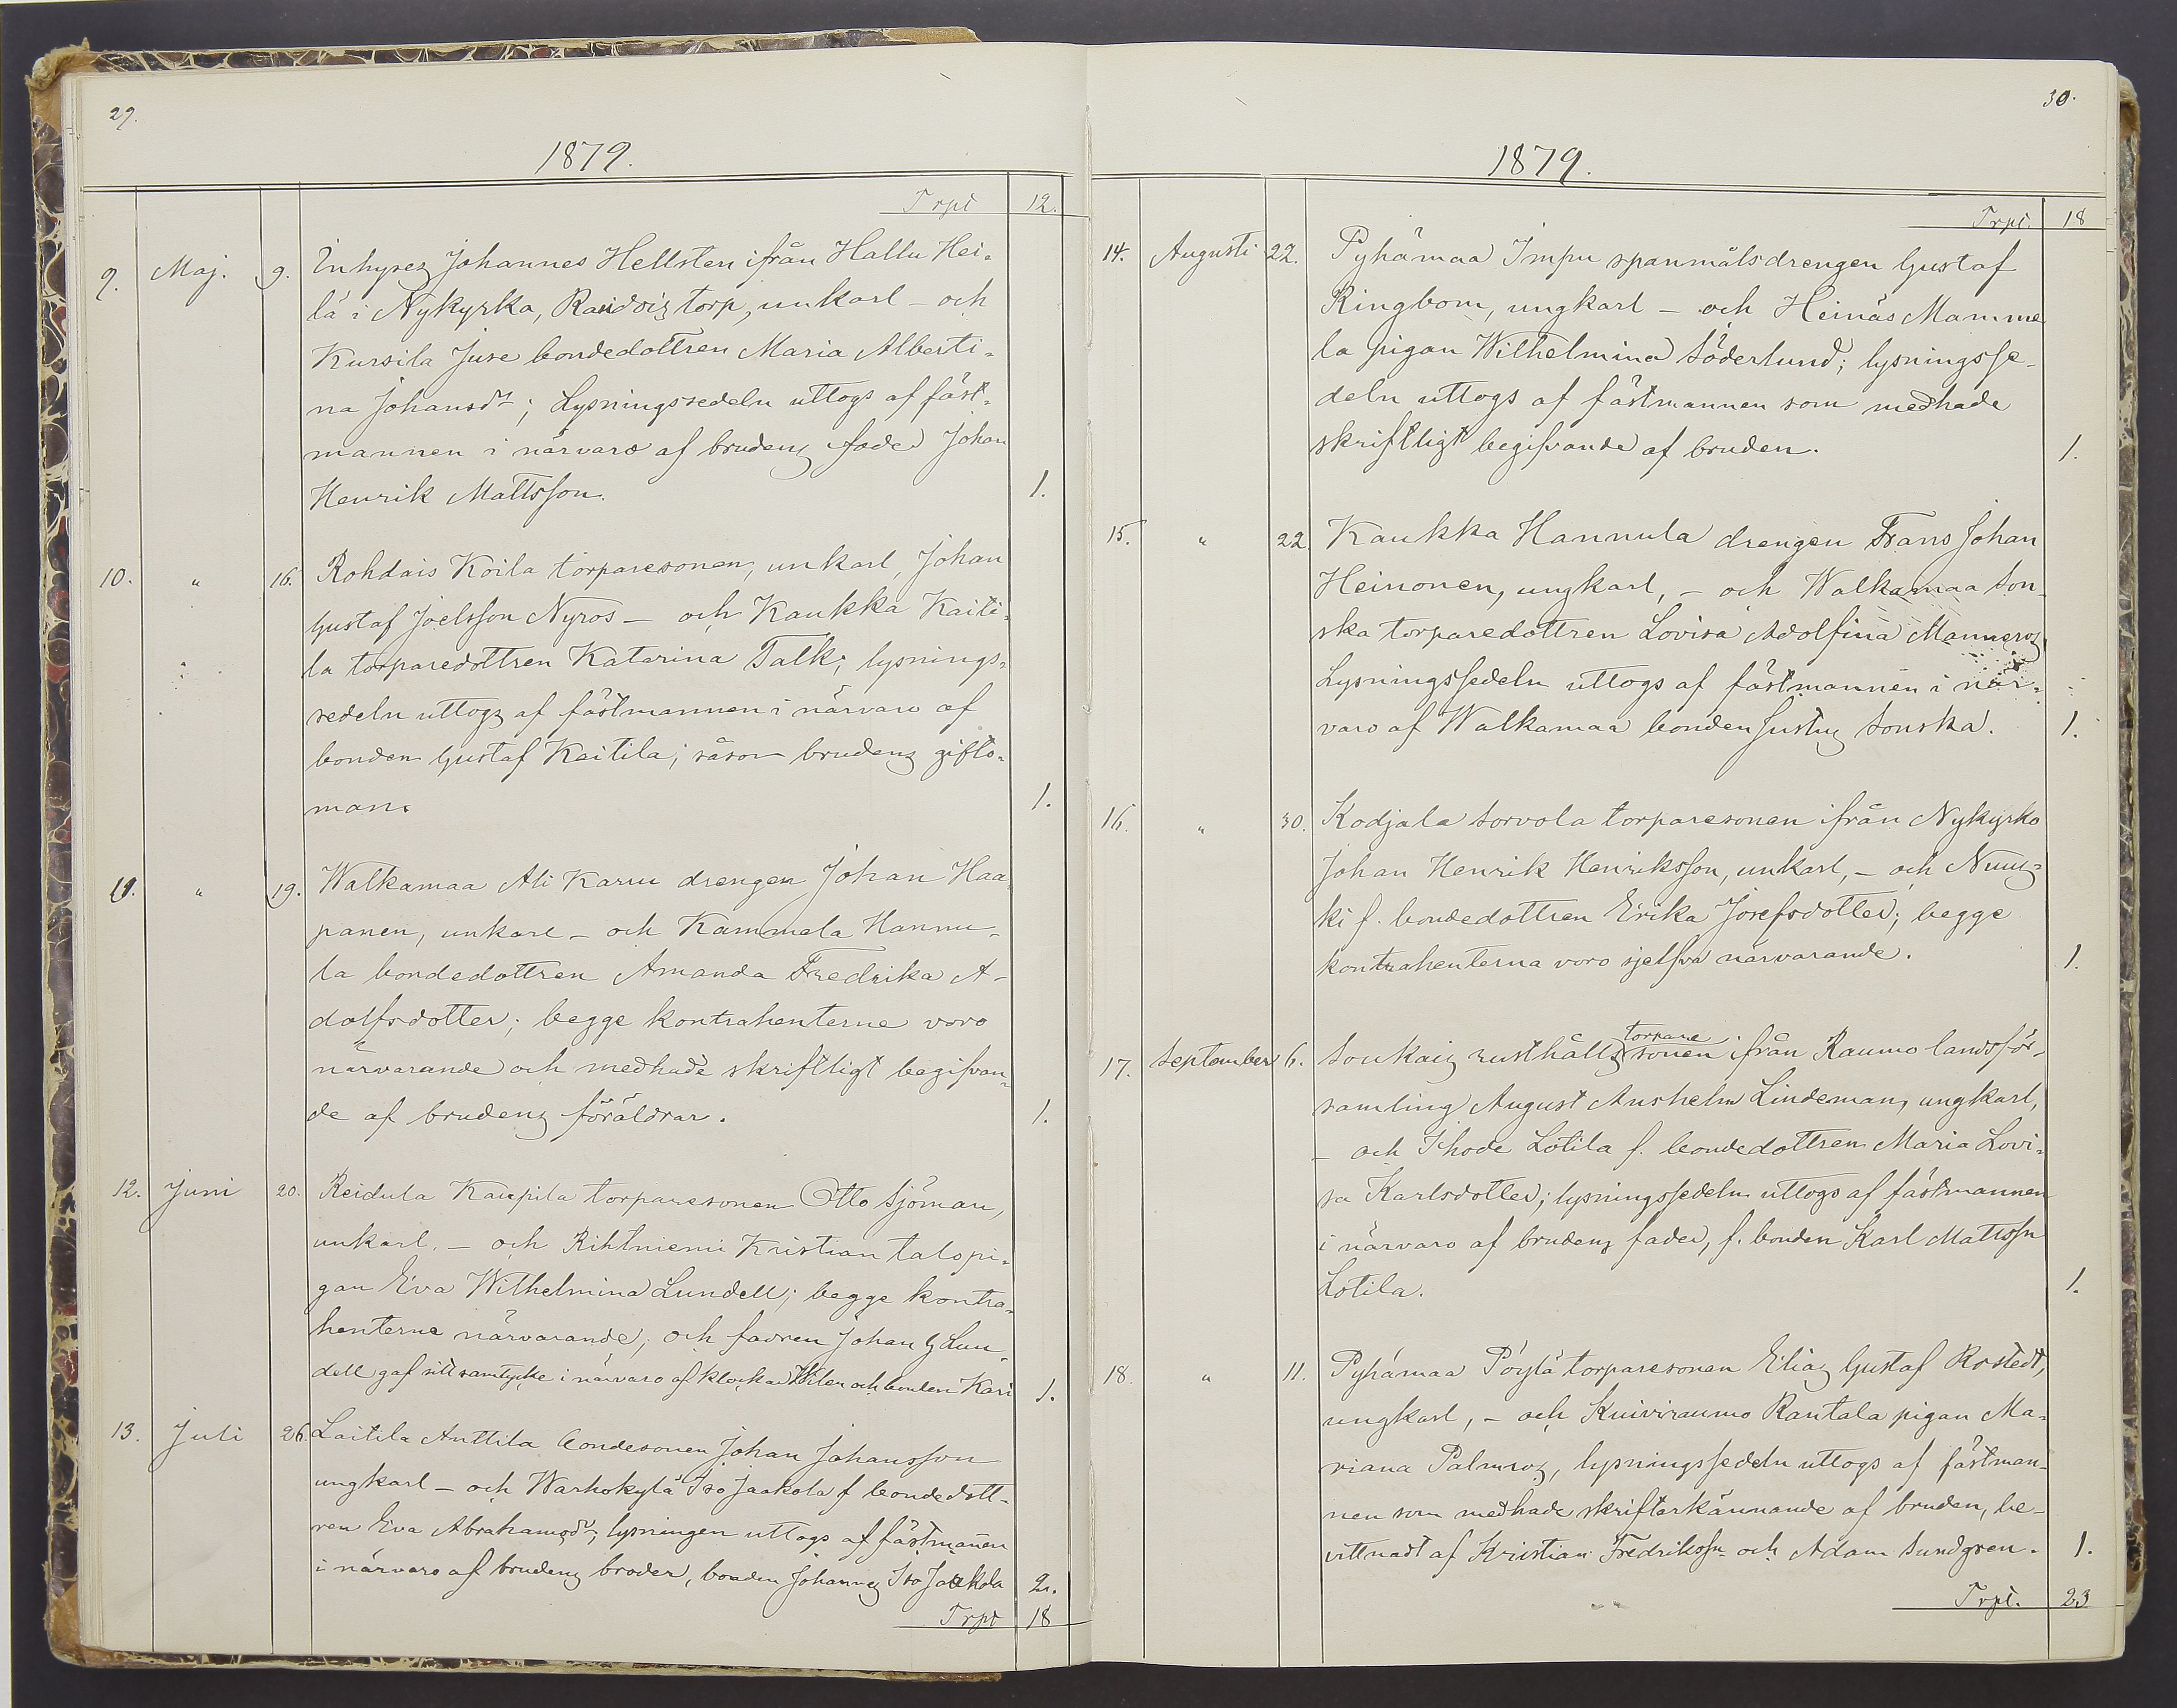 29.
1879.
Trpt 12.
9. Maj. 9. Inhyses Johannes Hellsten ifrån Hallu Hei-
lä i Nykyrka, torp, unkarl - och
Kursila Juse bondedottren Maria Alberti-
na Johansdr; Lysningssedeln uttogs af fäst-
mannen i närvaro af brudens fader Johan
Henrik Mattsson. 1.
10. " 16. Rohdais Koila torparesonen, unkarl, Johan
Gustaf Joelsson Nyros - och Kaukka Kaiti-
la torparedottren Katarina Talk; lysnings-
sedeln uttogs af fästmannen i närvaro af
bonden Gustaf Kaitila; såson brudens gifto-
man. 1.
11. " 19. Walkamaa Ali Karru drengen Johan Haa-
panen, unkarl - och Kammela Hannu-
la bondedottren Amanda Fredrika A-
dolfsdotter; begge kontrahenterne voro
närvarande och medhade skriftligt begifvan-
de af brudens föräldrar. 1.
12. Juni 20. Reidula Kaupila torparesonen Otto Sjöman,
unkarl. - och Rihtniemi Kristian talo pi-
gan Eva Wilhelmina Lundell; begge kontra-
henterne närvarande; och fadren Johan G Lun-
dell gaf sitt samtycke i närvaro af klockar Wilen och bonden Kari 1.
13. Juli 26. Laitila Anttila bondesonen Johan Johansson
ungkarl - och Warhokylä Iso Jaakola f bondedott-
ren Eva Abrahamsdr; lysningen uttogs af fästmannen
i närvaro af brudens broder, bonden Johannes Iso Jaakola 2.
Trpt 18
30.
1879.
Trpt. 18
14. Augusti 22. Pyhämaa Impu spanmålsdrengen Gustaf
Ringbom, ungkarl - och Heinäs Mamme
la pigan Wilhelmina Söderlund; lysningsse-
deln uttogs af fästmannen som medhade
skriftligt begifvande af bruden. 1.
15. " 22. Kaukka Hannula drengen Frans Johan
Heinonen, ungkarl, - och Walkamaa Son-
ska torparedottren Lovisa Adolfina Manneros,
Lysningssedeln uttogs af fästmannen i när-
varo af Walkamaa bonden Sonska. 1.
16. " 30. Kodjala Sorvola torparesonen ifrån Nykyrko
Johan Henrik Henriksson, unkarl, - och
ki f. bondedottren Erika Josefsdotter; begge
kontrahenterna voro sjelfva närvarande. 1.
17. September 6. Soukais rusthålls torpare sonen ifrån Raumo landsför-
samling August Anshelm Lindeman, ungkarl,
- och Ihode Lotila f. bondedottren Maria Lovi-
sa Karlsdotter; lysningssedeln uttogs af fästmannen
i närvaro af brudens fader, f. bonden Karl Mattsson
Lotila. 1.
18. " 11. Pyhämaa Pöylä torparesonen Elias Gustaf Rostedt,
ungkarl, - och Kuiviraumo Rantala pigan Ma-
riana Palmros, lysningssedeln uttogs af fästman-
nen som medhade skrifterkännande af bruden, be-
vittnadt af Kristian Fredrikssn och Adam Sundgren. 1.
Trpt. 23